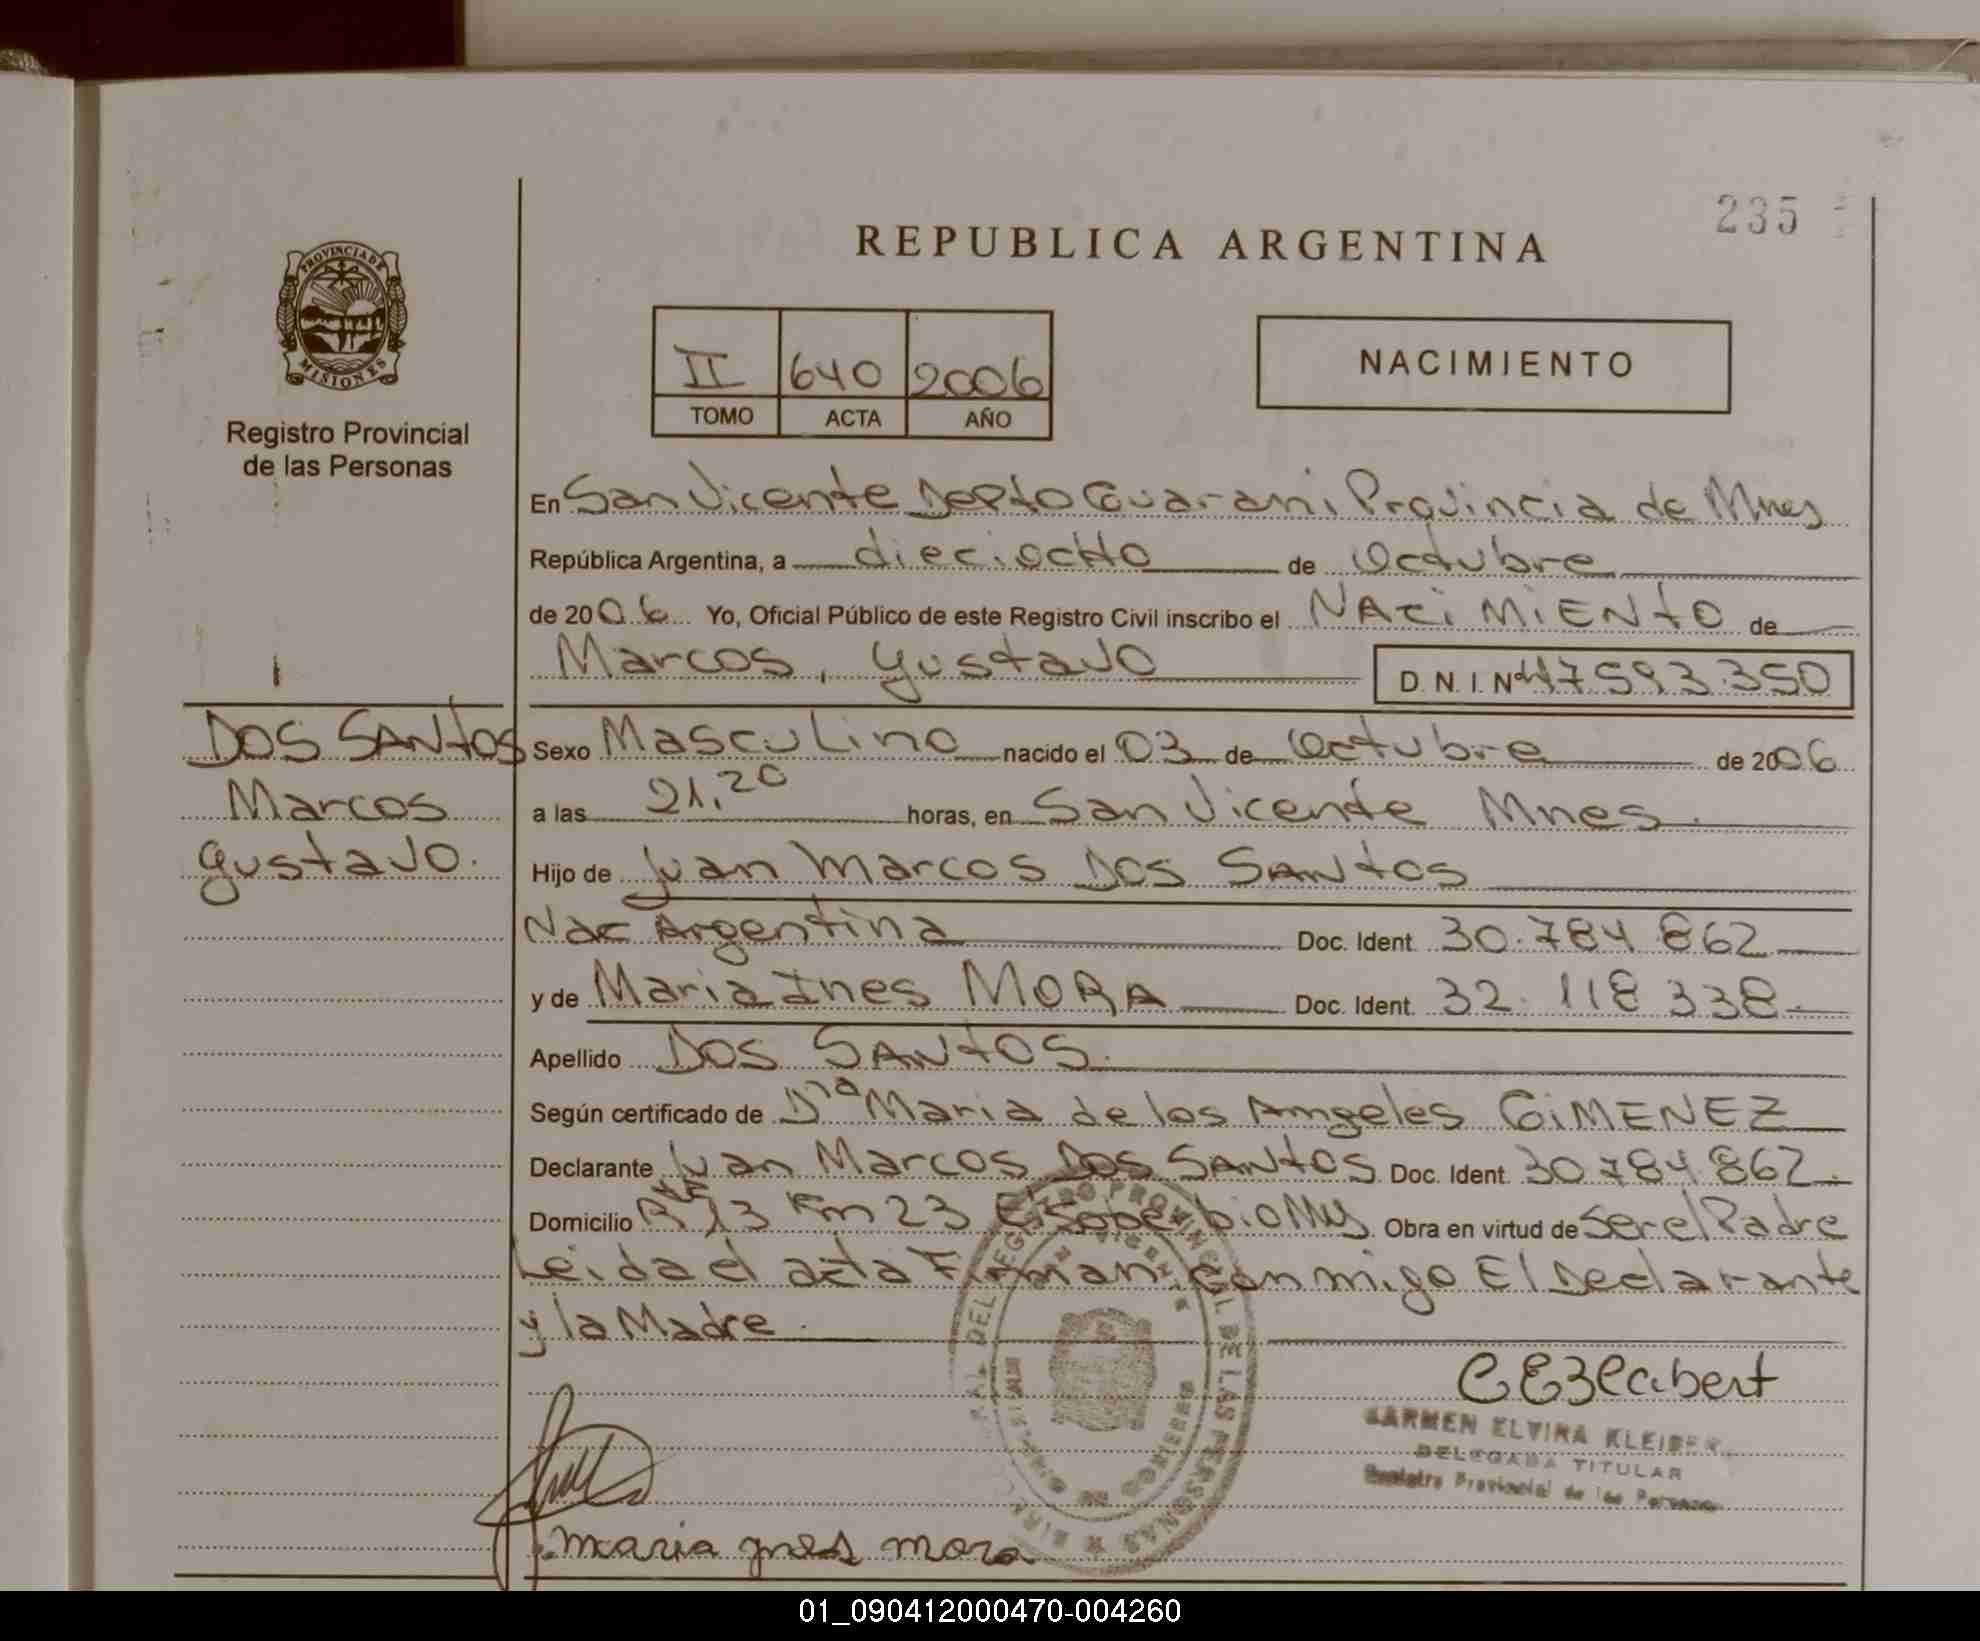 235
REPUBLICA ARGENTINA
PROVINCIA DE
MISIONES
Registro Provincial
de las Personas
II 640 2006
TOMO ACTA AÑO
NACIMIENTO
En San Vicente Depto Guarani Provincia de Mnes
República Argentina, a dieciocho de Octubre
de 2006 Yo, Oficial Público de este Registro Civil inscribo el NACIMIENTO de
Marcos, Gustavo D.N.I. Nº 47593.350
DOS SANTOS
Marcos
Gustavo.
Sexo Masculino nacido el 03 de Octubre de 2006
a las 21,20 horas, en San Vicente Mnes.
Hijo de Juan Marcos DOS SANTOS
Nac Argentina Doc. Ident. 30.784 862
y de Maria Ines MORA Doc. Ident. 32.118 338.
Apellido DOS SANTOS.
Según certificado de Dña Maria de los Angeles GIMENEZ
Declarante Juan Marcos Dos SANTOS Doc. Ident. 30 784 862.
Domicilio 13 Km 23 El Soberbio Obra en virtud de ser el Padre
Leida el acta Firman conmigo El Declarante
y la Madre.
CARMEN ELVIRA KLEIBER
DELEGADA TITULAR
Registro Provincial de las Personas
maria ines mora
REGISTRO PROVINCIAL DE LAS PERSONAS
01_090412000470-004260